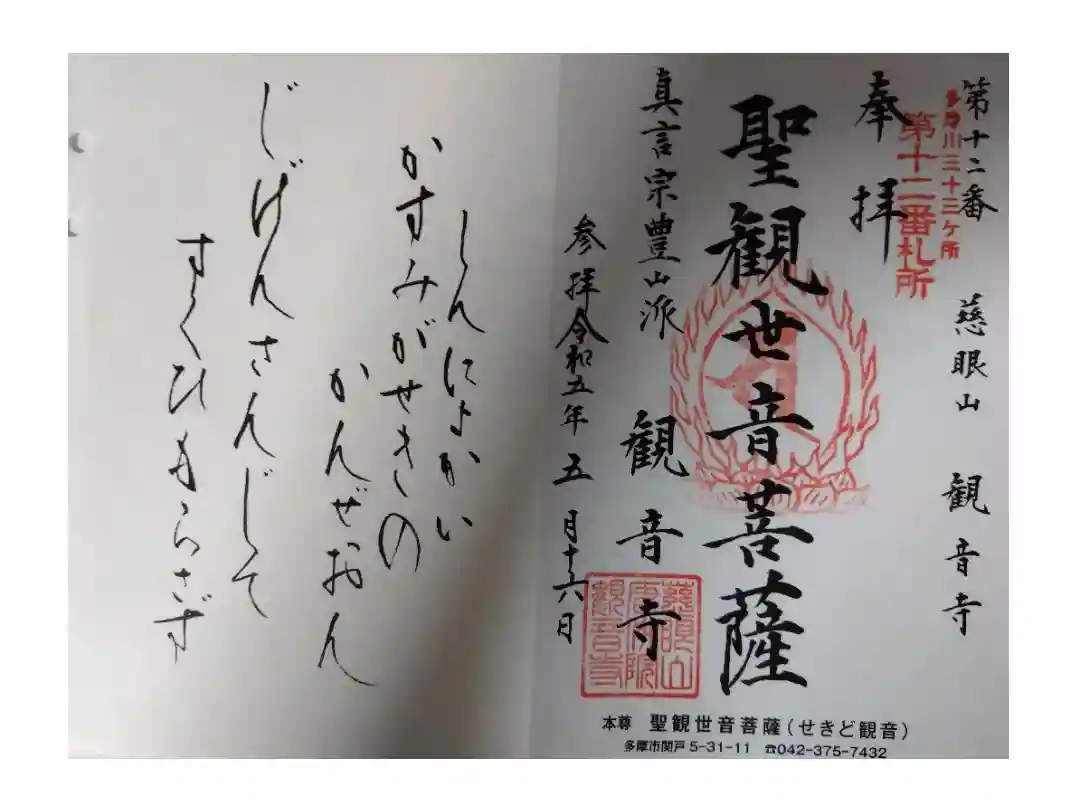 第十二番 慈眼山 観音寺
多摩川三十三ヶ所
第十二番札所
奉拝
聖観世音菩薩
真言宗豊山派 観音寺
参拝令和五年五月十六日
慈眼山
唐仏院
観音寺
本尊 聖観世音菩薩(せきど観音)
多摩市関戸5-31-11 ☎042-375-7432
しんによかい
かすみがせきの
かんぜおん
じげんさんじて
すくひもらさず